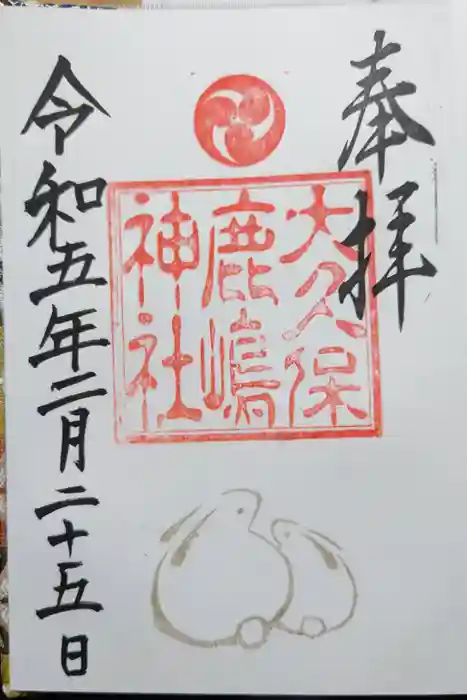 奉拝
大久保
鹿嶋
神社
令和五年二月二十五日